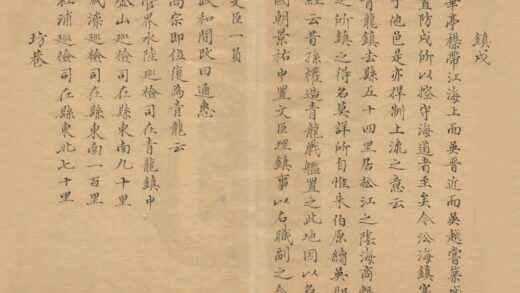 鎮戍
華亭襟帶江海上而吳晉近而吳越嘗築城
置防戍所以控守海道者至矣今㳂海鎮寨
于他邑是亦捍制上流之意云
青龍鎮去縣五十四里居松江之陰海商輻
之所鎮之得名莫詳所自惟朱伯原續吳郡
經云昔孫權造青龍戰艦置之此地因以名
國朝景祐中置文臣理鎮事以右職副之今
文臣一員
政和間改曰通惠
高宗即位復為青龍云
管界水陸巡檢司在青龍鎮中
金山巡檢司在縣東南九十里
戚漴巡檢司在縣東南一百里
杜浦巡檢司在縣東北七十里
坊巷